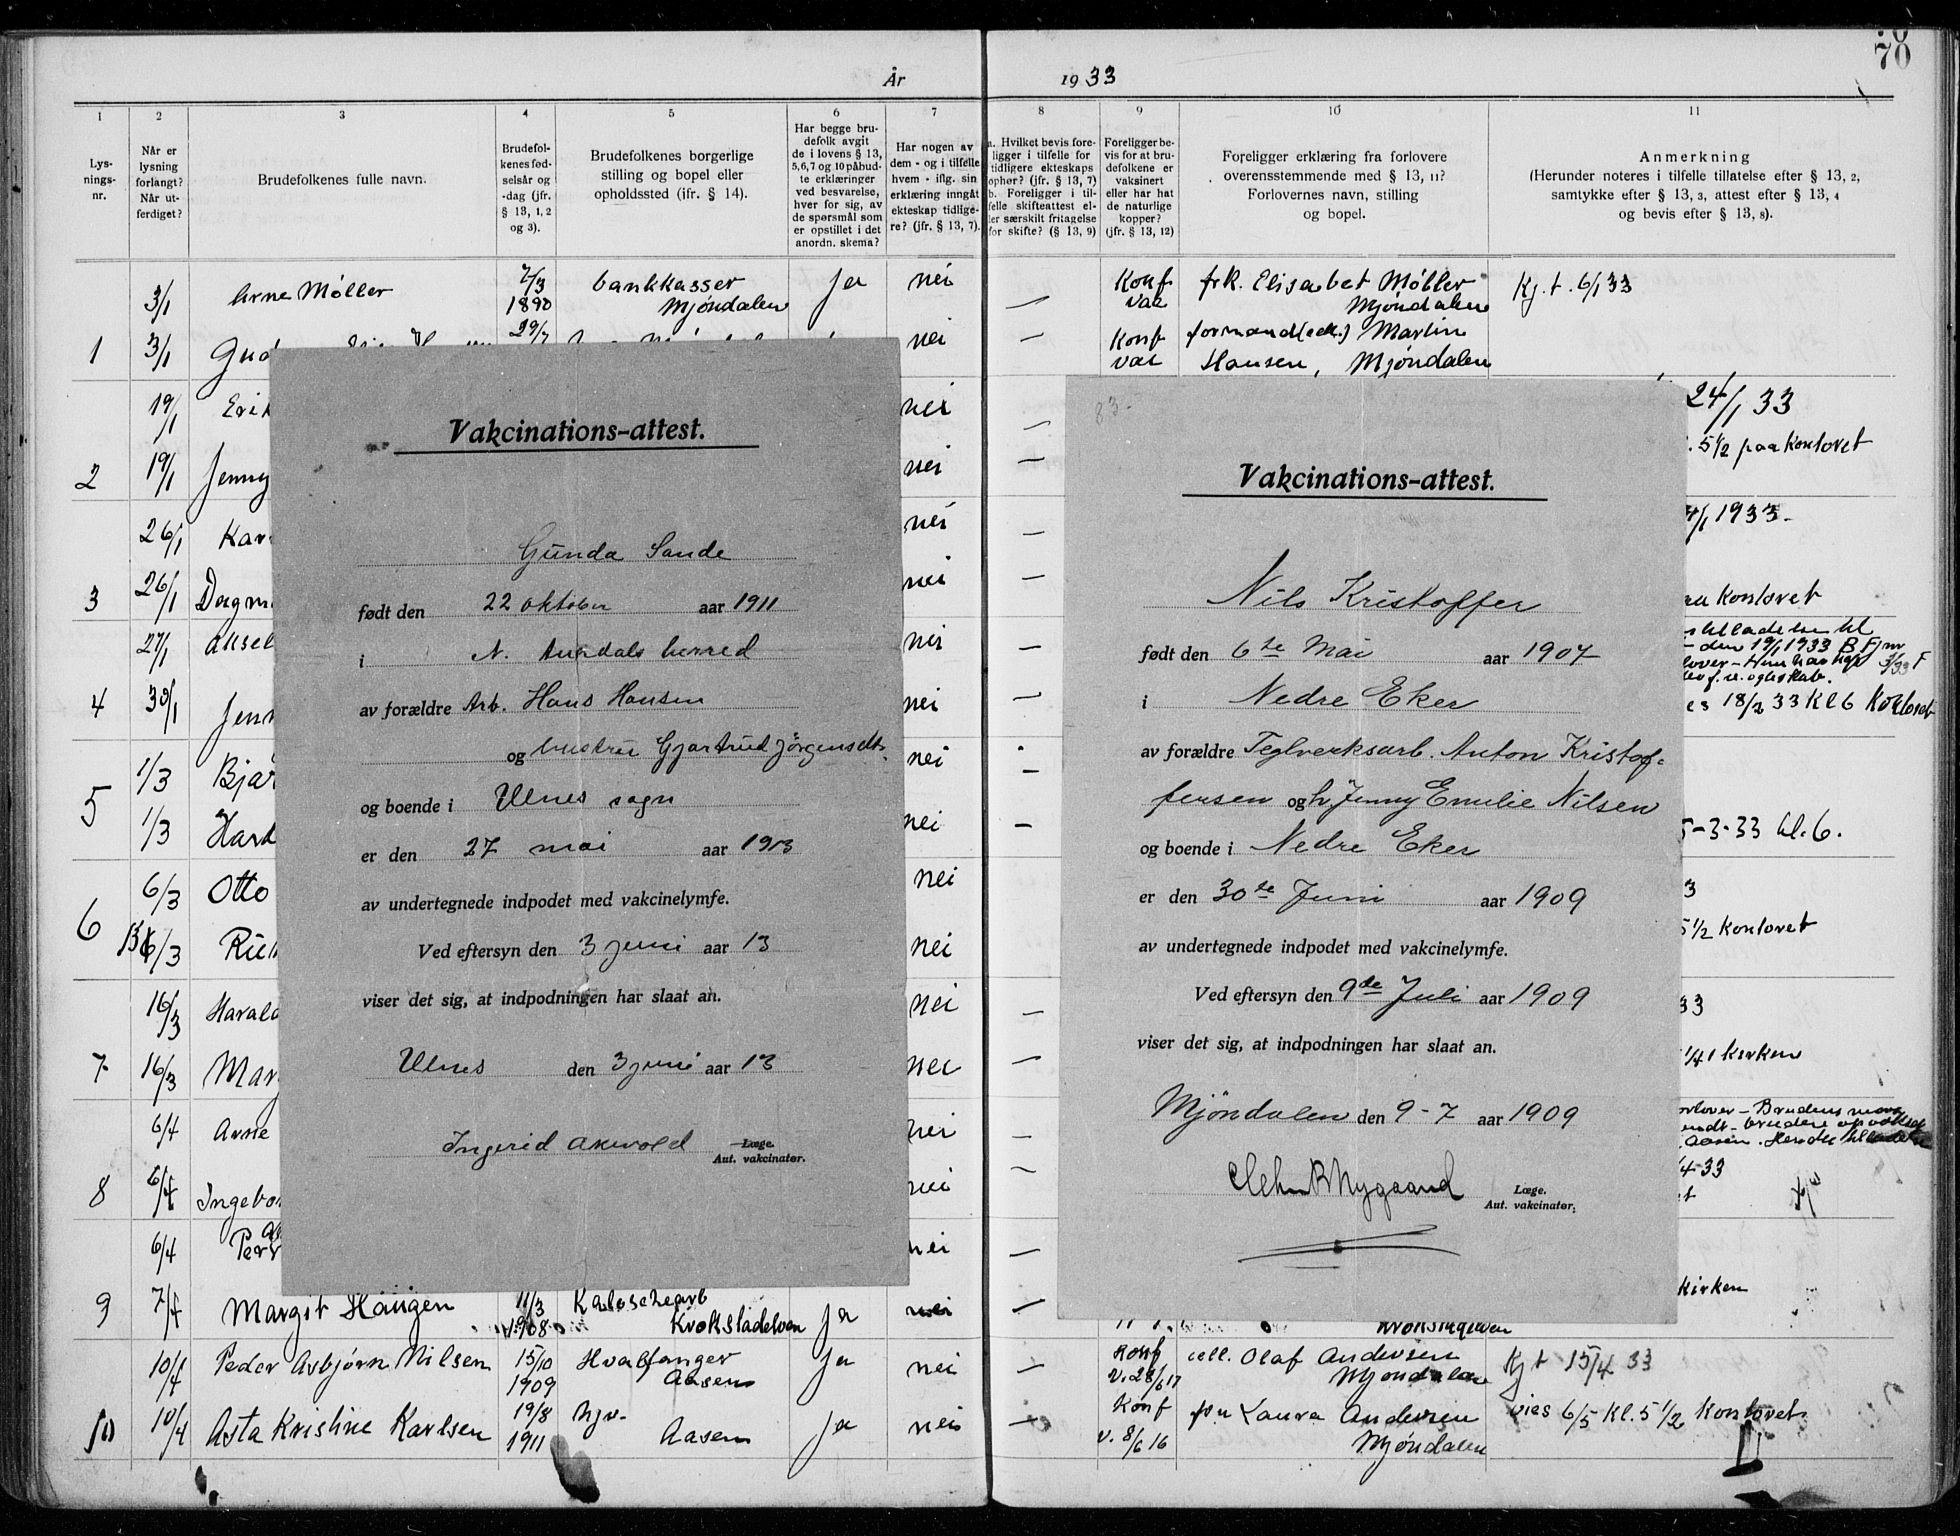 År 1933
70
1
2
3
4
5
6
7
8
9
10
11
Lys-
nings-
nr.
Når er
lysning
forlangt?
Når ut-
ferdiget?
Brudefolkenes fulle navn.
Brudefol-
kenes fød-
selsår og
-dag (jfr.
§ 13, 1, 2
og 3).
Brudefolkenes borgerlige
stilling og bopel eller
opholdssted (ifr. § 14).
Har begge bru-
defolk avgit
de i lovens § 13,
5,6,7 og 10 påbud-
te erklæringer
ved besvarelse,
hver for sig, av
de spørsmål som
er opstillet i det
anordn. skema?
Har nogen av
dem - og i tilfelle
hvem - iflg. sin
erklæring inngått
ekteskap tidlige-
re? (jfr. § 13, 7).
a. Hvilket bevis fore-
ligger i tilfelle for
tidligere ekteskaps
ophør? (jfr. § 13, 7)
b. Foreligger i til-
felle skifteattest el-
ler særskilt fritagelse
for skifte? (§ 13, 9)
Foreligger be-
vis for at bru-
defolkene er
vaksinert
eller har hat
de naturlige
kopper?
(jfr. § 13, 12)
Foreligger erklæring fra forlovere
overensstemmende med § 13, 11?
Forlovernes navn, stilling
og bopel.
Anmerkning
(Herunder noteres i tilfelle tillatelse efter § 13, 2,
samtykke efter § 13, 3, attest efter § 13, 4
og bevis efter § 13, 8).
3/1 Arne Møller 7/3 1890 bankkasser Mjøndalen ja nei — Konf vac frk. Elisabet Møller Mjøndalen Kj.t. 6/1 33
1 3/1 Gud 29/7 nei — Konf vac formand(ell.) Martin Hansen, Mjøndalen
19/1 Erik nei — 24/1 33
2 19/1 Jenny nei — 5 1/2 paa Kontoret
26/1 Kar nei — /1 1933.
3 26/1 Dagm nei — Kontoret
27/1 Aksel nei — den 19/1 1933
4 30/1 Jenn nei — 18/2 33 Kl 6 Kontoret
1/3 Bjar nei
5 1/3 Hart nei — 5-3-33 kl. 6.
6/3 Otto nei — 3
6 6/3 nei — 5 1/2 Kontoret
16/3 Harald nei — 33
7 16/3 Mar nei — kirken
6/4 Arne nei — forlover — Brudens
8 6/4 Ingebo nei — 4-33
6/4 Per nei —
9 7/4 Margit Haugen 11/3 1908 Krokstadelven ja nei — kirken
Krokstadelven
10/4 Peder Asbjørn Nilsen 15/10 1909 Hvalfanger Aasen ja nei — Konf v. 28/6 17 ell. Olaf Andersen Mjøndalen Kj t 15/4 33
10 10/4 Asta Kristine Karlsen 19/8 1911 hjv. Aasen ja nei — Konf v. 8/6 16 fru Laura Andersen Mjøndalen vies 6/5 Kl. 5 1/2 Kontoret
Vakcinations-attest.
Gunda Sande
født den 22 oktober aar 1911
i N. Aurdals herred
av forældre Arb. Hans Hansen
og hustru Gjartrud Jørgensdt.
og boende i Ulnes sogn
er den 27 mai aar 1913
av undertegnede indpodet med vakcinelymfe.
Ved eftersyn den 3 juni aar 13
viser det sig, at indpodningen har slaat an.
Ulnes den 3 juni aar 13
Ingerid
Læge.
Aut. vakcinatør.
83-
Vakcinations-attest.
Nils Kristoffer
født den 6te Mai aar 1907
i Nedre Eker
av forældre Teglverksarb. Anton Kristof-
fersen og h. Jenny Emilie Nilsen
og boende i Nedre Eker
er den 30te Juni aar 1909
av undertegnede indpodet med vakcinelymfe.
Ved eftersyn den 9de Juli aar 1909
viser det sig, at indpodningen har slaat an.
Mjöndalen den 9-7 aar 1909
Nygaard
Læge.
Aut. vakcinatør.